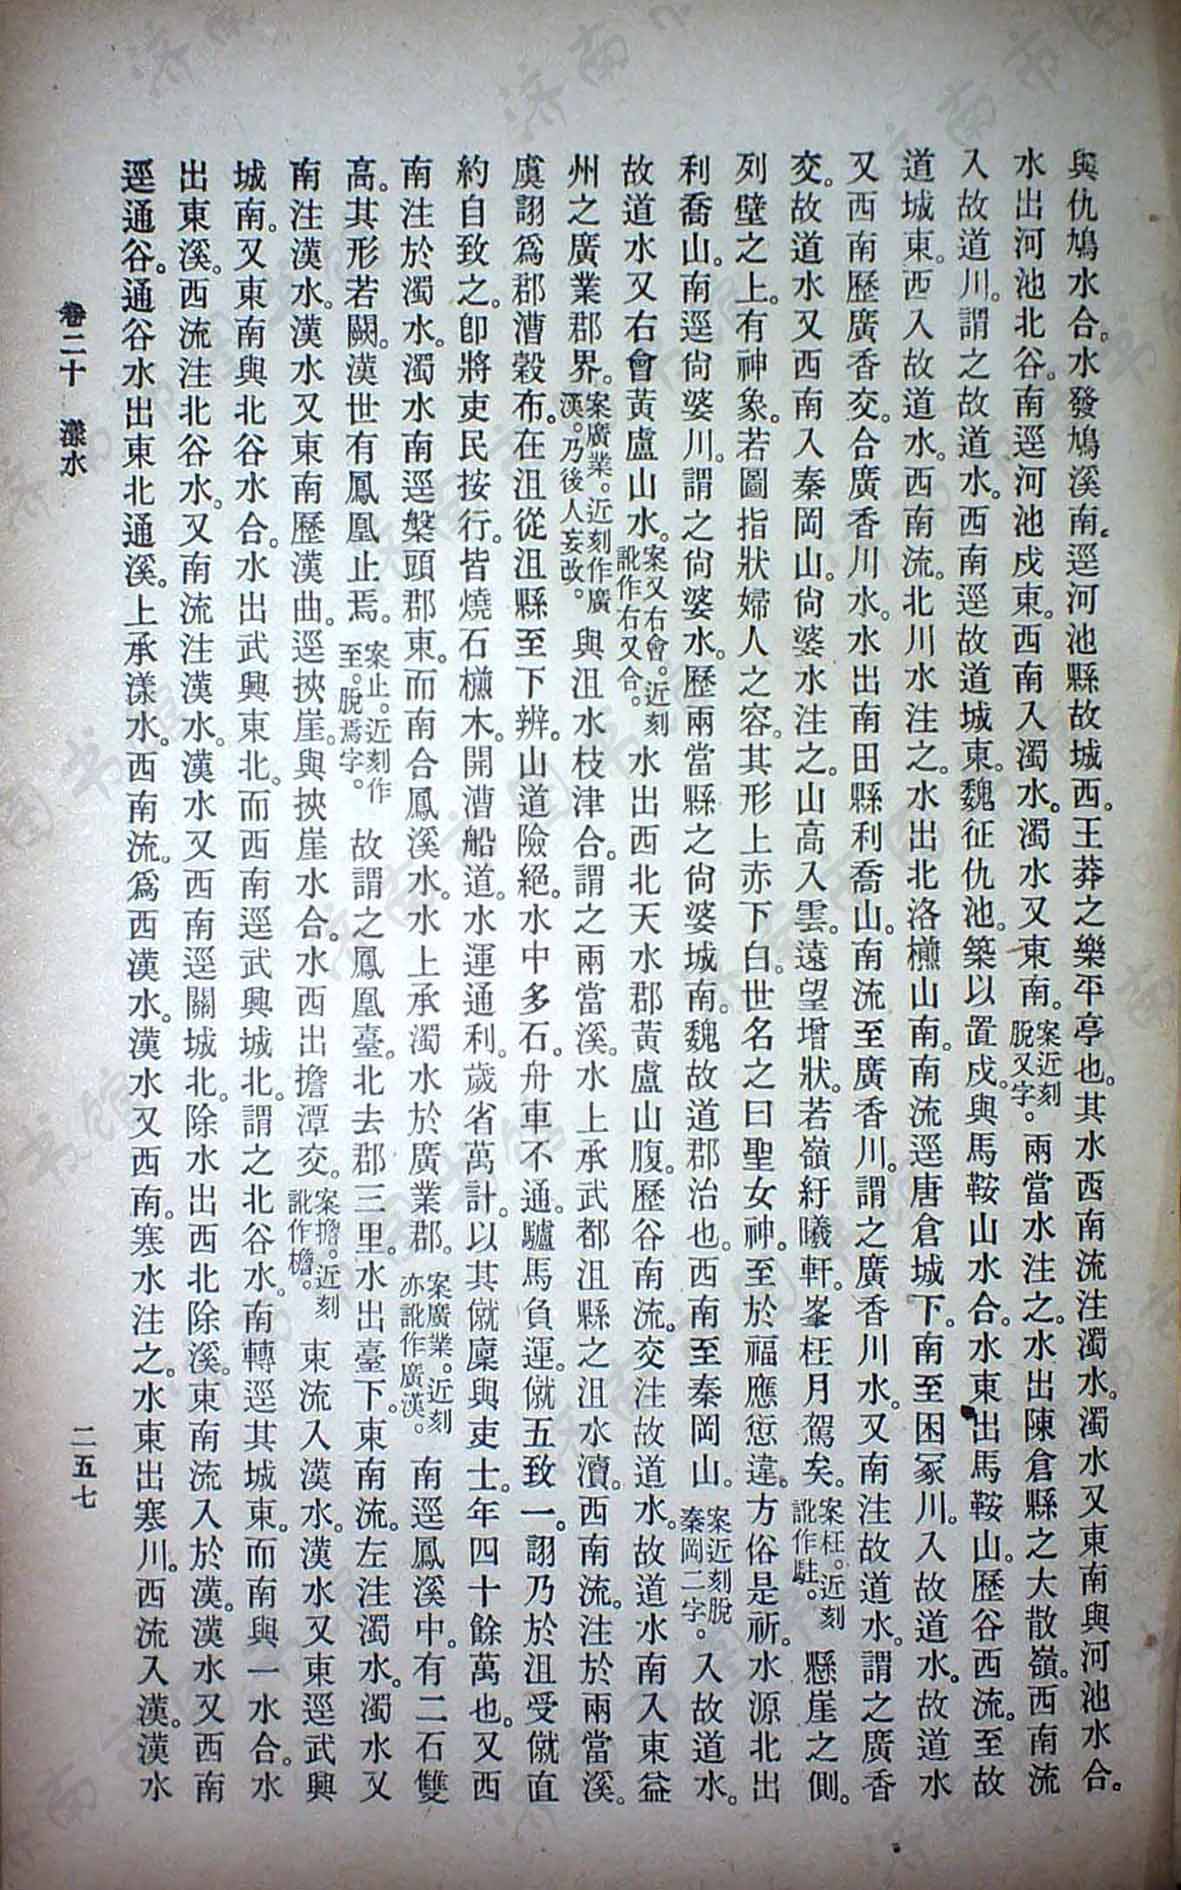 與仇鳩水合。水發鳩溪南。逕河池縣故城西。王莽之樂平亭也。其水西南流注濁水。濁水又東南與河池水合。
水出河池北谷。南逕河池戍東。西南入濁水。濁水又東南。案近刻脫又字。兩當水注之。水出陳倉縣之大散嶺。西南流
入故道川。謂之故道水。西南逕故道城東。魏征仇池。築以置戍。與馬鞍山水合。水東出馬鞍山。歷谷西流。至故
道城東。西入故道水。西南流。北川水注之。水出北洛櫹山南。南流逕唐倉城下。南至困冢川。入故道水。故道水
又西南歷廣香交。合廣香川水。水出南田縣利喬山。南流至廣香川。謂之廣香川水。又南注故道水。謂之廣香
交。故道水又西南入秦岡山。尙婆水注之。山高入雲。遠望增狀。若嶺紆曦軒。峯枉月駕矣。案枉。近刻訛作駐。懸崖之側。
列壁之上。有神象。若圖指狀婦人之容。其形上赤下白。世名之曰聖女神。至於福應愆違。方俗是祈。水源北出
利喬山。南逕尙婆川。謂之尙婆水。歷兩當縣之尙婆城南。魏故道郡治也。西南至秦岡山。案近刻脫秦岡二字。入故道水。
故道水又右會黃盧山水。案又右會。近刻訛作右又合。水出西北天水郡黃盧山腹。歷谷南流。交注故道水。故道水南入東益
州之廣業郡界。案廣業。近刻作廣漢。乃後人妄改。與沮水枝津合。謂之兩當溪。水上承武都沮縣之沮水瀆。西南流。注於兩當溪。
虞詡爲郡漕穀布。在沮從沮縣至下辨。山道險絕。水中多石。舟車不通。驢馬負運。僦五致一。詡乃於沮受僦直
約自致之。卽將吏民按行。皆燒石櫹木。開漕船道。水運通利。歲省萬計。以其僦廩與吏士。年四十餘萬也。又西
南注於濁水。濁水南逕槃頭郡東。而南合鳳溪水。水上承濁水於廣業郡。案廣業。近刻亦訛作廣漢。南逕鳳溪中。有二石雙
高。其形若闕。漢世有鳳凰止焉。案止。近刻作至。脫焉字。故謂之鳳凰臺。北去郡三里。水出臺下。東南流。左注濁水。濁水又
南注漢水。漢水又東南歷漢曲。逕挾崖。與挾崖水合。水西出擔潭交。案擔。近刻訛作檐。東流入漢水。漢水又東逕武興
城南。又東南與北谷水合。水出武興東北。而西南逕武興城北。謂之北谷水。南轉逕其城東。而南與一水合。水
出東溪。西流注北谷水。又南流注漢水。漢水又西南逕關城北。除水出西北除溪。東南流入於漢。漢水又西南
逕通谷。通谷水出東北通溪。上承漾水。西南流。爲西漢水。漢水又西南。寒水注之。水東出寒川。西流入漢。漢水
卷二十 漾水
二五七